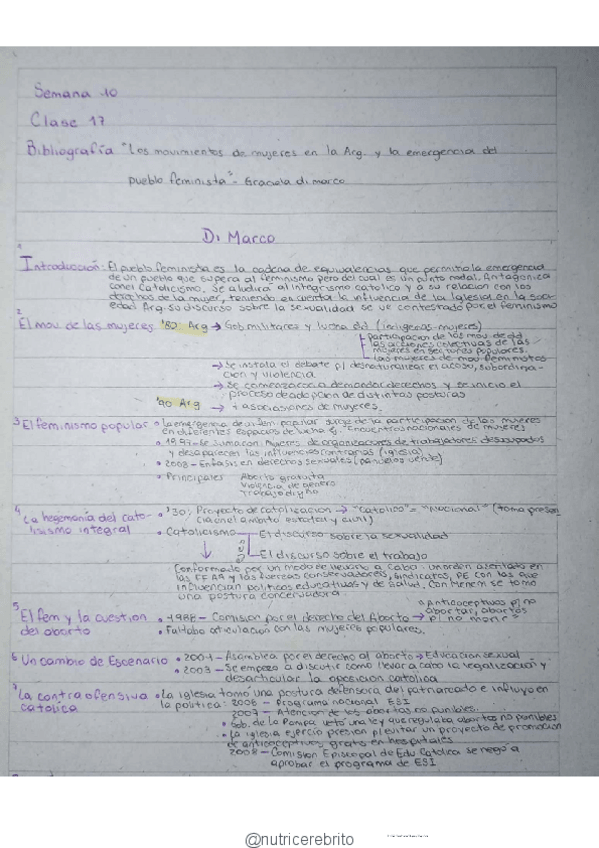 Semana 10
Clase 17
Bibliografía "Los movimientos de mujeres en la Arg. y la emergencia del
pueblo feminista" - Graciela di marco
Di Marco
Introducción: El pueblo feminista es la cadena de equivalencias que permitio la emergencia
de un pueblo que supera al feminismo pero del cual es un punto nodal. Antagoniza
con el Catolicismo. Se aludirá al integrismo catolico y a su relacion con los
derechos de la mujer, teniendo en cuenta la influencia de la Iglesia en la soci-
edad Arg. su discurso sobre la sexualidad se ve contestado por el feminismo
2
El mov de las mujeres '80 Arg → Gob militares y lucha dd (indigenas-mujeres)
participacion de las mov. de dd
las acciones colectivas de las
mujeres en sectores populares.
las mujeres de mov feministas
→ Se instala el debate p/ desnaturalizar el acoso, subordina-
cion y violencia
→ Se comenzaron a demandar derechos y se inicio el
proceso de adopcion de distintas posturas
'90 Arg → + asociasiones de mujeres.
3 El feminismo popular • la emergencia de un fem. popular surge de la participacion de las mujeres
en diferentes espacios de lucha Ej. Encuentros nacionales de mujeres
• 1997 - se sumaron mujeres de organizaciones de trabajadores desocupados
y desaparecen las influencias contrarias (iglesia)
• 2003 - Enfasis en derechos sexuales (pañuelos verde)
• Principales Aborto gratuito
Violencia de genero
Trabajo digno
4 La hegemonía del cato-
licismo integral • '30: Proyecto de catolizacion → "Catolico" = "Nacional" (toma presen
cia en el ambito estatal y civil)
• Catolicismo El discurso sobre la sexualidad
El discurso sobre el trabajo
Conformado por un modo de llevarlo a cabo: un orden asentado en
las FFAA y las fuerzas conservadoras, Sindicatos, PE con las que
influencian politicas educativas y de salud. Con Menem se tomo
una postura conservadora.
5
El fem y la cuestion
del aborto • 1988 - Comision por el derecho del Aborto → "Anticoceptivos p/ no
abortar, abortos
p/ no morir"
• Faltaba articulacion con las mujeres populares.
6 Un cambio de Escenario • 2004 - Asamblea por el derecho al aborto → Educacion sexual
• 2003 - Se empezo a discutir como llevar a cabo la legalizacion y
desarticular la oposicion catolica
7
La contraofensiva
catolica • La iglesia tomo una postura defensora del patriarcado e influyo en
la politica: 2006 - Programa nacional ESI
2007 - Atencion de los abortos no punibles.
• Gob. de La Pampa vetó una ley que regulaba abortos no punibles
• La iglesia ejercio presion p/ evitar un proyecto de promocion
de anticoceptivos gratis en hospitales
2008 - Comision Episcopal de Edu Catolica se negó a
aprobar el programa de ESI
@nutricerebrito